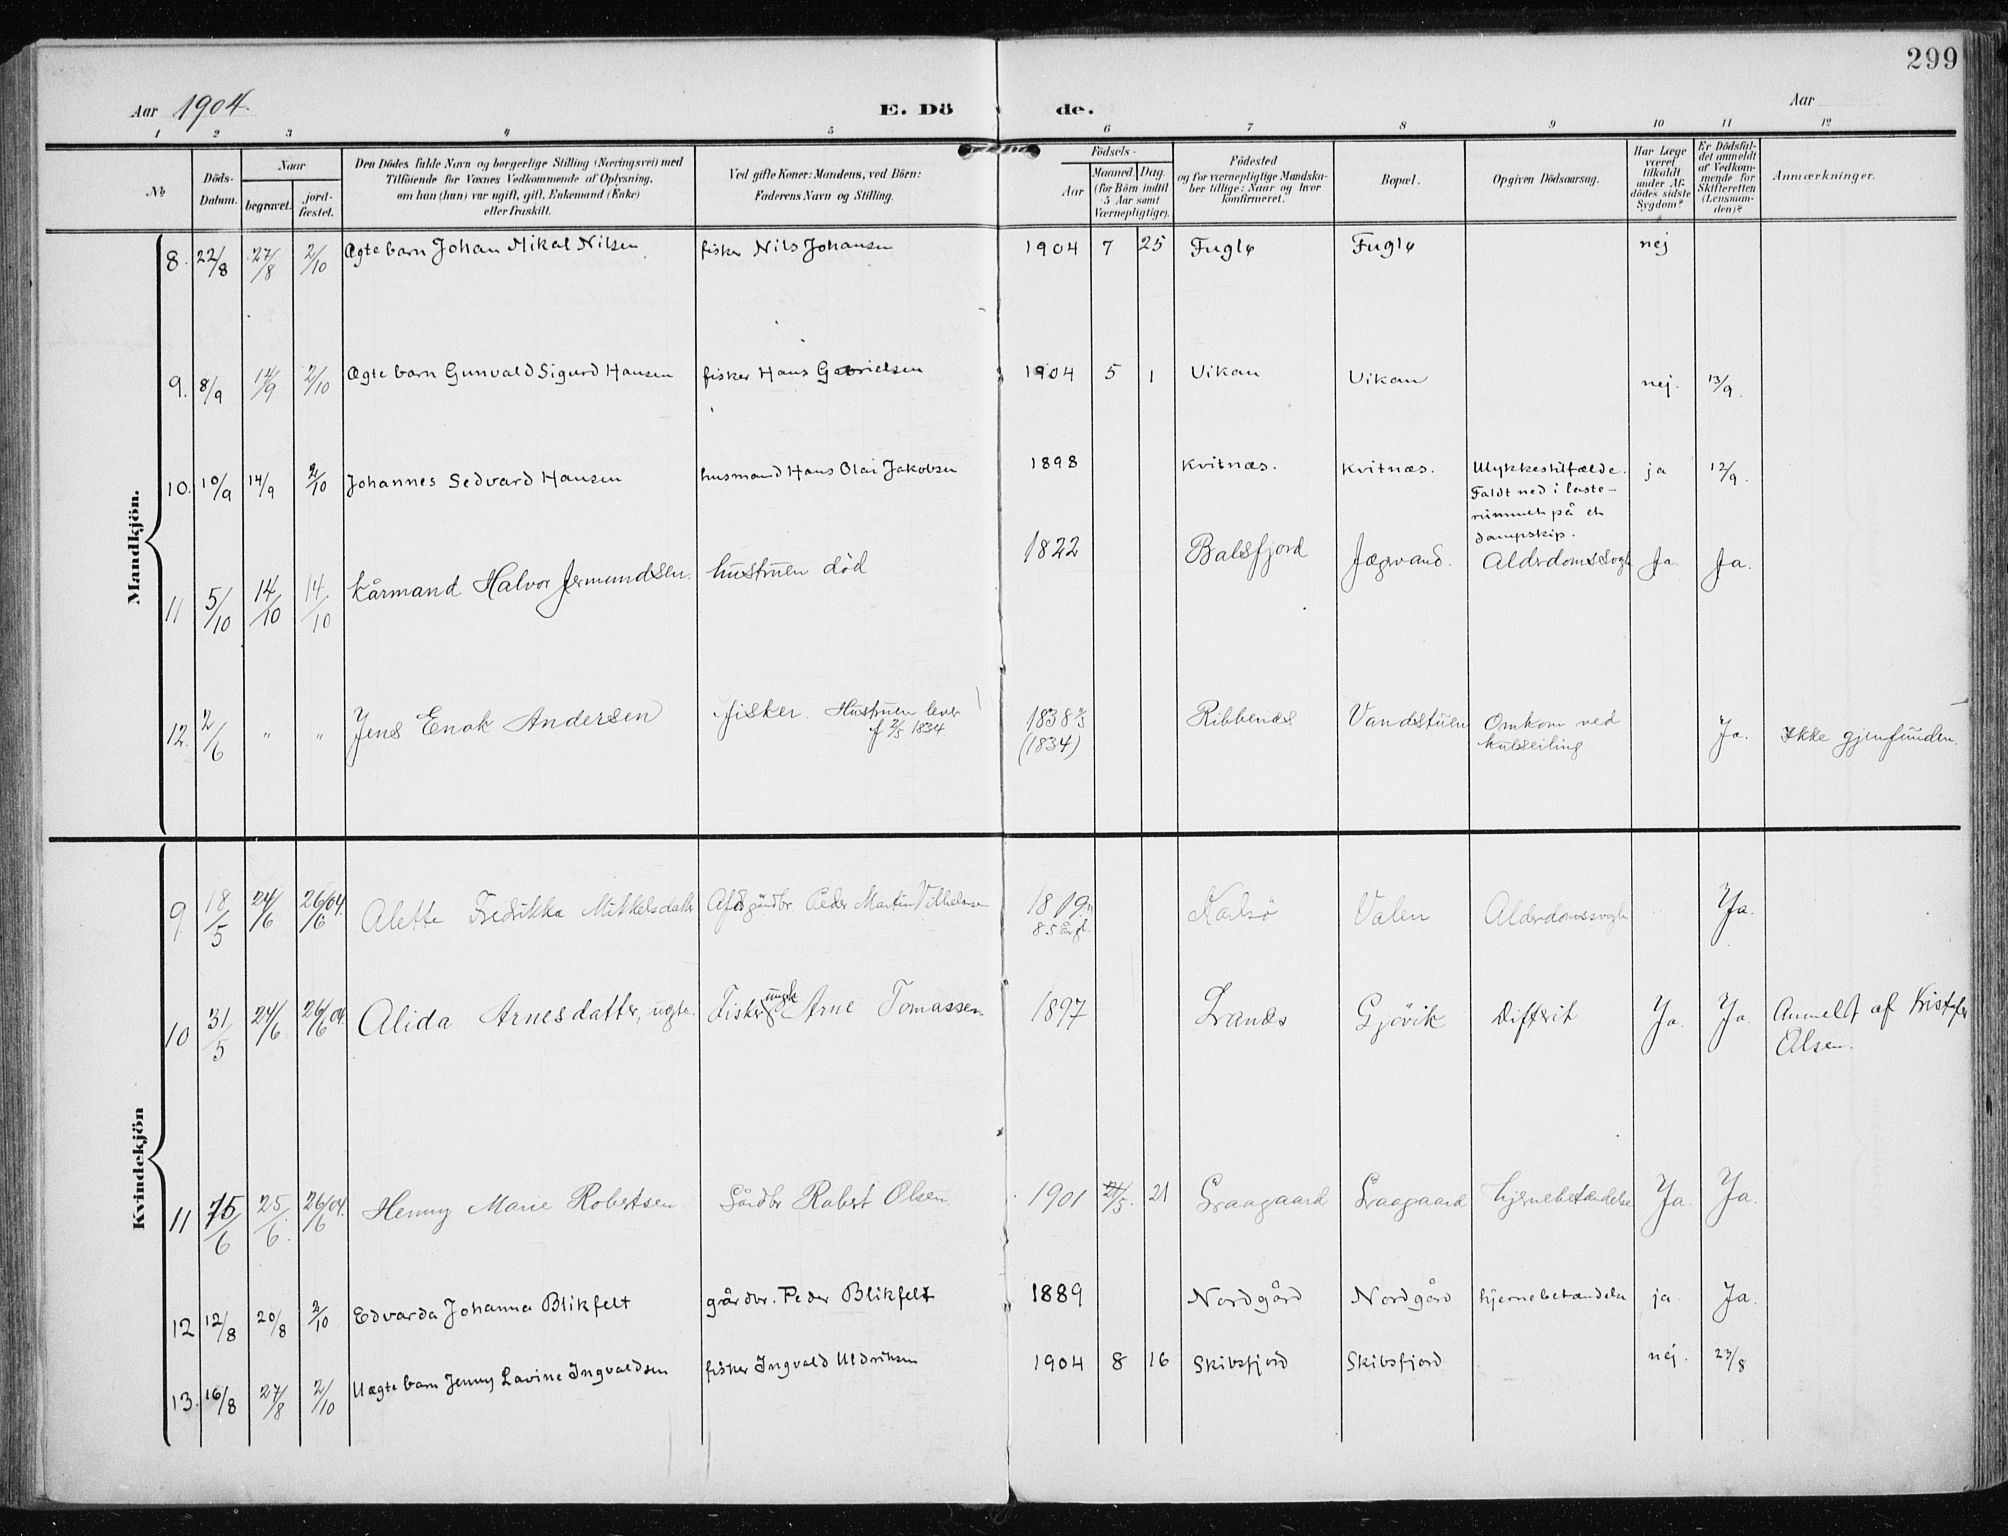 299
Aar 1904. E. Dö de. Aar
1 2 3 4 5 6 7 8 9 10 11 12
No Döds-Datum. Naar begravet. jord-fæstet. Den Dödes fulde Navn og borgerlige Stilling (Næringsvei) med Tilföiende for Voxnes Vedkommende af Oplysning, om han (hun) var ugift, gift, Enkemand (Enke) eller fraskilt. Ved gifte Koner: Mandens, ved Börn: Faderens Navn og Stilling. Födsels- Aar Maaned. Dag. (for Börn indtil 5 Aar samt Værnepligtige). Födested og for værnepligtige Mandska-ber tillige: Naar og hvor konfirmeret. Bopæl. Opgiven Dödsaarsag. Har Læge været tilkaldt under Af-dödes sidste Sygdom? Er Dödsfal-det anmeldt af Vedkom-mende for Skifteretten (Lensman-den)? Anmærkninger.
Mandkjön.
8. 22/8 27/8 2/10 Ægte barn Johan Mikal Nilsen fisker Nils Johansen 1904 7 25 Fuglø Fuglø nej
9. 8/9 14/9 2/10 Ægte barn Gunvald Sigurd Hansen fisker Hans Gabrielsen 1904 5 1 Vikan Vikan nej. 13/9.
10. 10/9 14/9 2/10 Johannes Sedvard Hansen husmand Hans Olai Jakobsen 1898 Kvitnæs. Kvitnæs. Ulykkestilfælde. ja 12/9.
Faldt ned i laste-
rummet på et
dampskip.
11 5/10 14/10 14/10 Kårmand Halvor Jermundsen. hustruen död 1822 Balsfjord Jægervand. Alderdomssvagh Ja. Ja.
12. 2/6 " " Jens Enok Andersen fisker. Hustruen lever 1838 Ribbenes Vandstuen Omkom ved Ja. Ikke gjenfunden.
f 2/5 1834 (1834) kulseiling
Kvindekjön
9 18/5 24/6 26/6 04. Alette Fredrikka Mikkelsdatter gårdbr. Peder Martin Vilhelmsen 1819 Karlsö Valen Alderdomssvagh Ja.
85 år gl.
10 31/5 24/6 26/6 04 Alida Arnesdatter, uægte. Fisker ungk Arne Tomassen 1897 Grandes Gjövik Difterit Ja. Ja. Anmeldt af Kristofer
Olsen.
11 15/6 25/6. 26/6 04. Henny Marie Robertsen Gårdbr Robert Olsen 1901 21/5. 21 Graagaard Graagaard Hjernebetændelse Ja. Ja.
12 12/8 20/8 2/10 Edvarda Johanna Blikfelt gårdbr. Peder Blikfelt 1889 Nordgård Nordgård hjernebetændelse ja. Ja.
13. 16/8 27/8 2/10 Uægte barn Jenny Lavine Ingvaldsen fisker Ingvald Uldriksen 1904 8 16 Skibsfjord Skibsfjord nej. 23/8